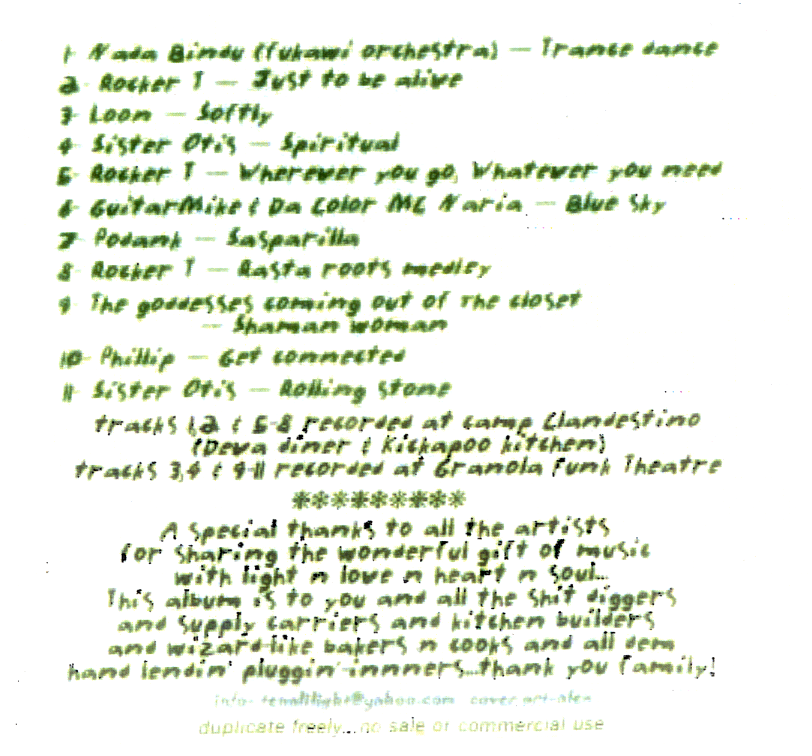 1- Nada Bindu (fukawi orchestra) — Trance dance
2- Rocker T — Just to be alive
3- Loon — Softly
4- Sister Otis — Spiritual
5- Rocker T — Wherever you go, Whatever you need
6- GuitarMike & Da Color MC Naria — Blue Sky
7- Podank — Sasparilla
8- Rocker T — Rasta roots medley
9- The goddesses coming out of The closet
— Shaman woman
10- Phillip — Get connected
11- Sister Otis — Rolling Stone
tracks 1,2 & 5-8 recorded at camp Clandestino
(Deva diner & Kickapoo kitchen)
tracks 3,4 & 9-11 recorded at Granola Funk Theatre
*********
A Special thanks to all the artists
for Sharing the wonderful gift of music
with light n love n heart n Soul...
This album is to you and all the Shit diggers
and Supply carriers and kitchen builders
and wizard-like bakers n cooks and all dem
hand lendin' pluggin'-innners...thank you family!
info- cover art-alen
duplicate freely... no sale or commercial use